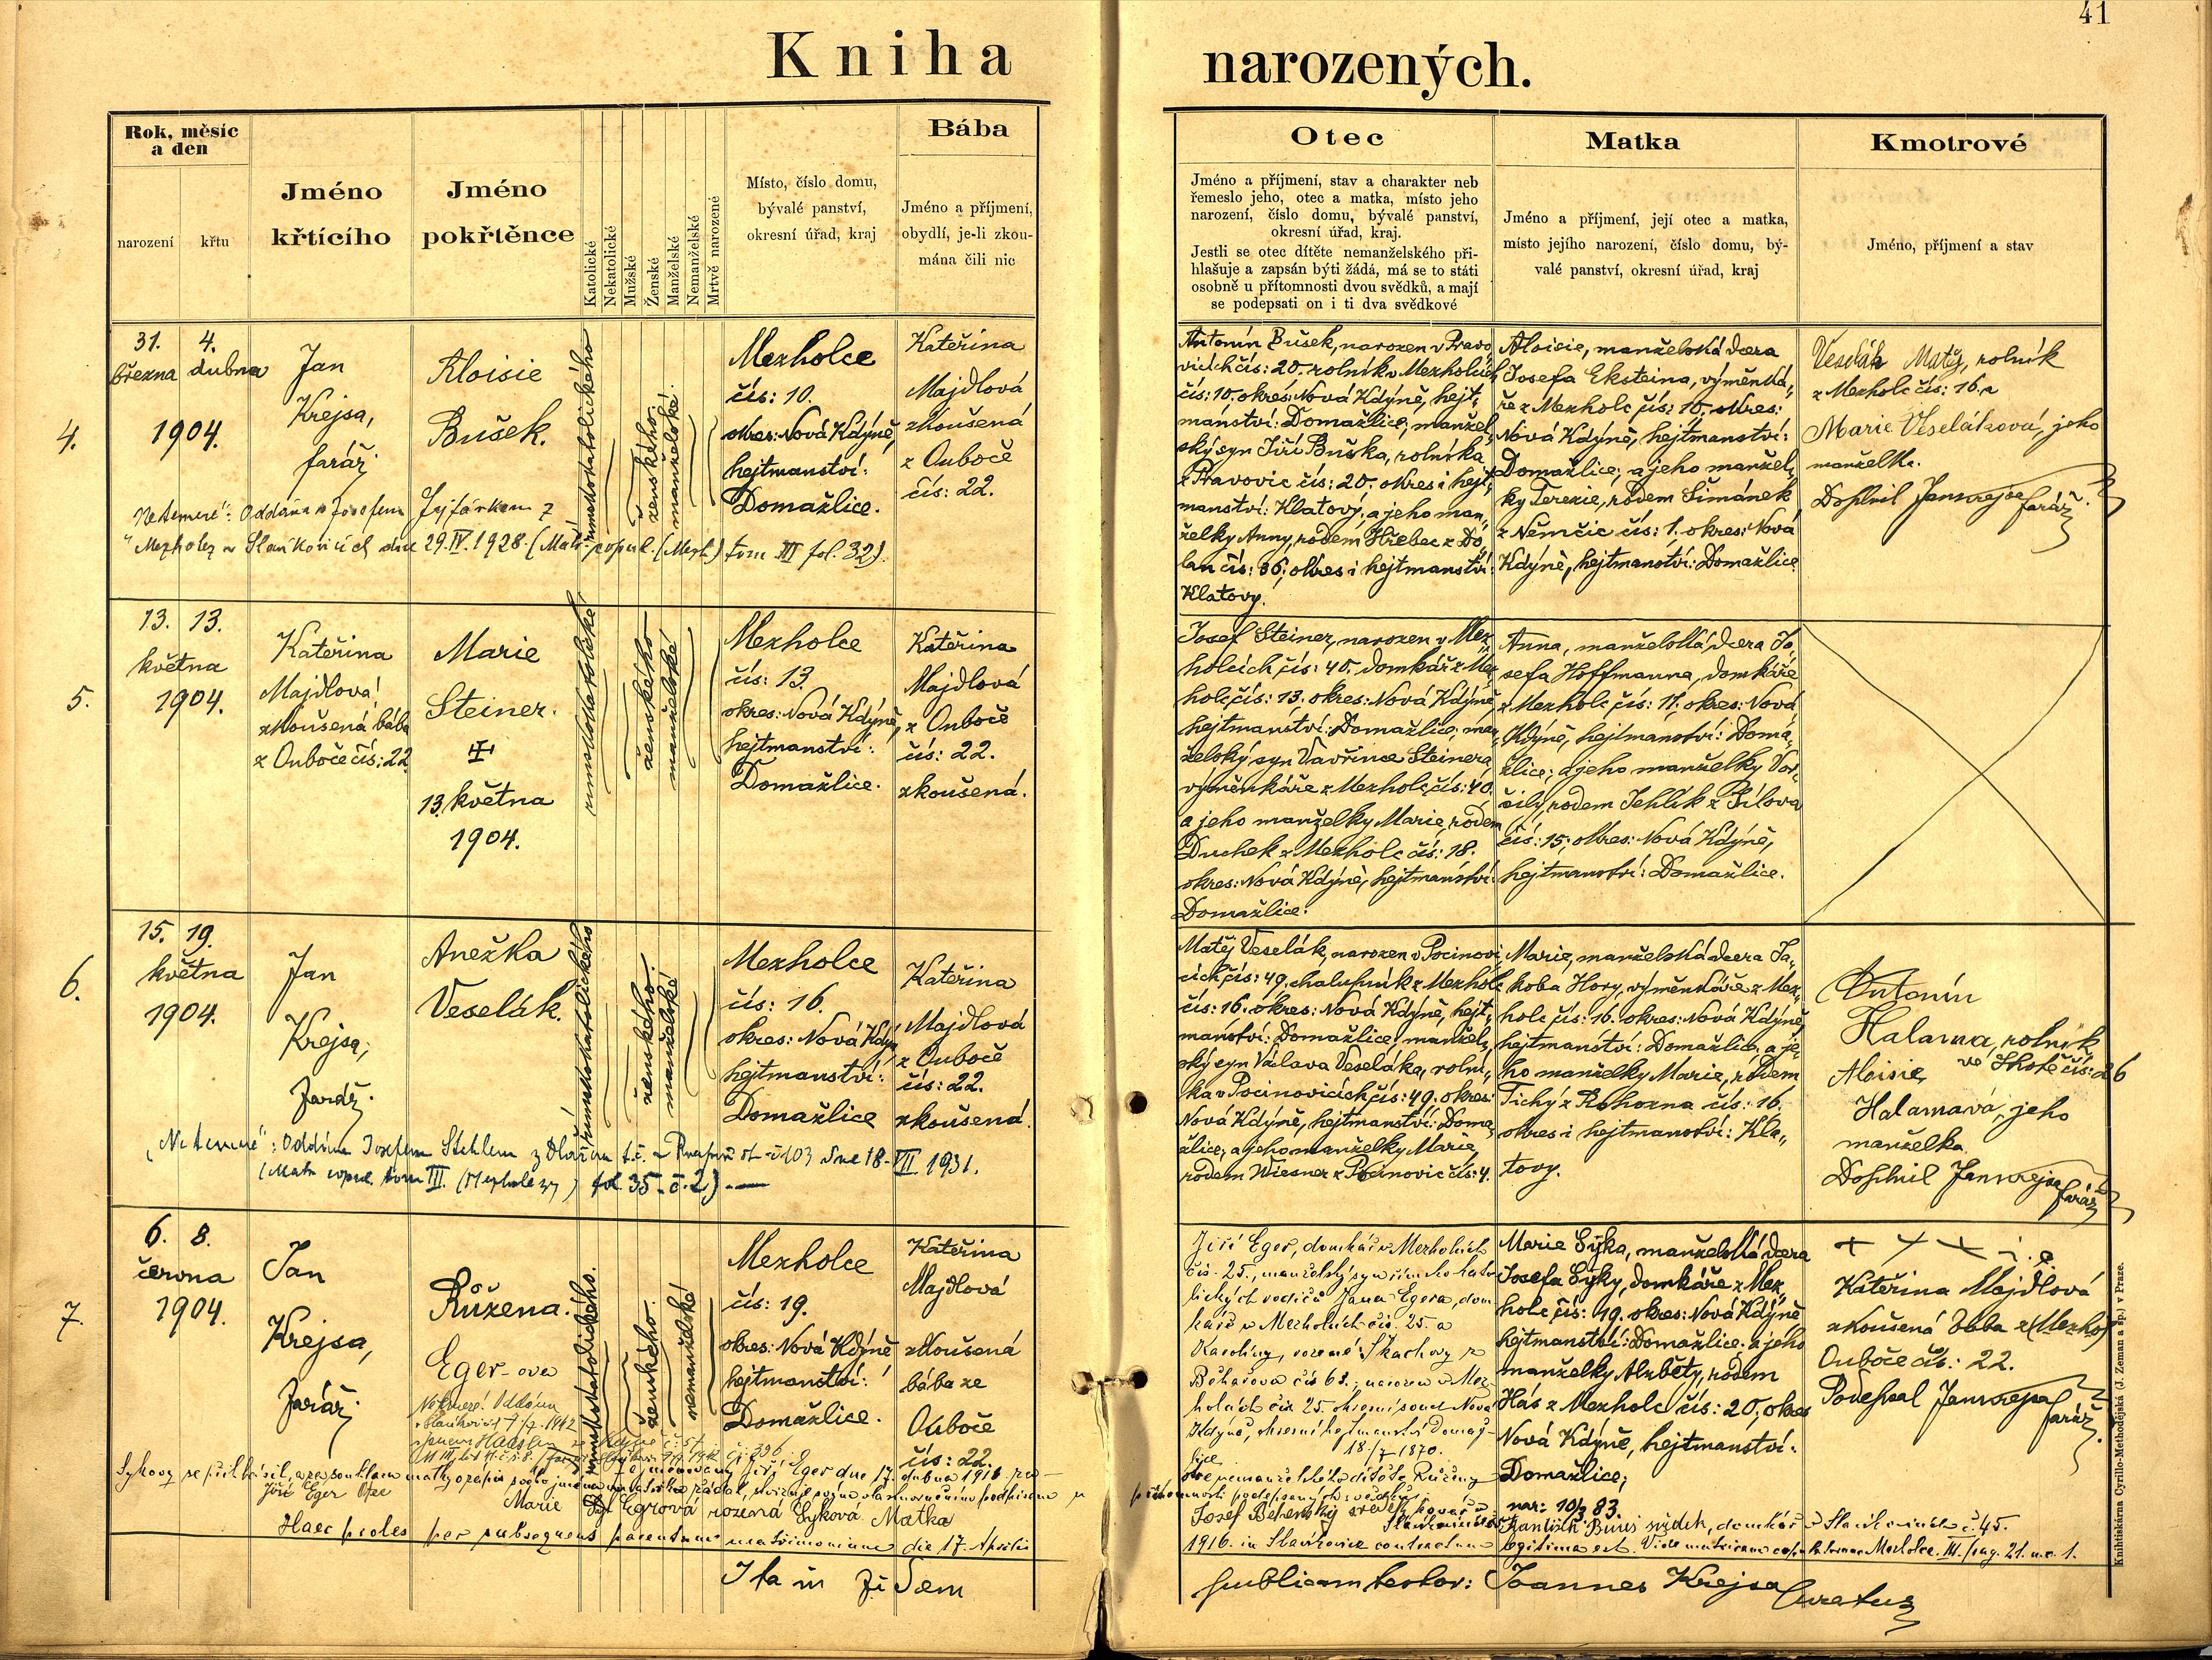 41
Kniha narozených.
Rok, měsíc a den
narození
křtu
Jméno křtícího
Jméno pokřtěnce
Katolické
Nekatolické
Mužské
Ženské
Manželské
Nemanželské
Mrtvě narozené
Místo, číslo domu,
bývalé panství,
okresní úřad, kraj
Bába
Jméno a příjmení,
obydlí, je-li zkou-
mána čili nic
Otec
Jméno a příjmení, stav a charakter neb
řemeslo jeho, otec a matka, místo jeho
narození, číslo domu, bývalé panství,
okresní úřad, kraj.
Jestli se otec dítěte nemanželského při-
hlašuje a zapsán býti žádá, má se to státi
osobně u přítomnosti dvou svědků, a mají
se podepsati on i ti dva svědkové
Matka
Jméno a příjmení, její otec a matka,
místo jejího narození, číslo domu, bý-
valé panství, okresní úřad, kraj
Kmotrové
Jméno, příjmení a stav
4.
31. 4.
března dubna
1904.
Jan
Krejsa,
farář.
Aloisie
Bušek.
římskokatolického
ženského.
manželské.
Mezholce
čís: 10.
okres: Nová Kdýně,
hejtmanství:
Domažlice.
Kateřina
Majdlová
zkoušená
z Ouboče
čís: 22.
"Ne temere": Oddána s Josefem z
Mezholez v Slavíkovicích dne 29.IV.1928. (Matr. copul. (Mezh.) tom III fol. 32).
Antonín Bušek, narozen v Pravo„
vicích čís: 20. rolník v Mezholcích
čís: 10. okres: Nová Kdýně, hejt„
manství: Domažlice; manžel„
ský syn Jiří Buška, rolníka
z Pravovic čís: 20. okres i hejt„
manství: Klatovy; a jeho man„
želky Anny, rodem Hřebec z Do„
lan čís: 36; okres i hejtmanství:
Klatovy.
Aloisie, manželská dcera
Josefa Eksteina, výměnká„
ře z Mezholc čís: 10. okres:
Nová Kdýně, hejtmanství:
Domažlice; a jeho manžel„
ky Terezie, rodem Šimánek
z Němčic čís: 1. okres: Nová
Kdýně, hejtmanství: Domažlice
Veselák Matěj, rolník
z Mezholc čís: 16. a
Marie Veseláková, jeho
manželka.
Jan Krejsa farář.
5.
13. 13.
května
1904.
Kateřina
Majdlová
zkoušená bába
z Ouboče čís: 22.
Marie
Steiner.
13. května
1904.
římskokatolické
ženského
manželské
Mezholce
čís: 13.
okres: Nová Kdýně,
hejtmanství:
Domažlice.
Kateřina
Majdlová
z Ouboče
čís: 22.
zkoušená.
Josef Steiner, narozen v Mez„
holcích čís: 40. domkář z Mez„
holc čís: 13. okres: Nová Kdýně,
hejtmanství: Domažlice; man„
želský syn Vavřince Steinera
výměnkáře z Mezholc čís: 40.
a jeho manželky Marie, rodem
Duchek z Mezholc čís: 18.
okres: Nová Kdýně, hejtmanství:
Domažlice.
Anna, manželská dcera Jo„
sefa Hoffmanna, domkáře
z Mezholc čís: 11. okres: Nová
Kdýně, hejtmanství: Doma„
žlice; a jeho manželky Vor„
šily, rodem Jehlík z Bílova
čís: 15; okres: Nová Kdýně,
hejtmanství: Domažlice.
6.
15. 19.
května
1904.
Jan
Krejsa,
farář.
Anežka
Veselák.
římskokatolického
ženského.
manželské
Mezholce
čís: 16.
okres: Nová Kdýně
hejtmanství:
Domažlice
Kateřina
Majdlová
z Ouboče
čís: 22.
zkoušená.
"Ne temere": Oddána Josefem Stehlem z dne 18. VII. 1931.
(Matr. copul. tom III. (Mezholezy) fol. 35 - č. 2)
Matěj Veselák, narozen v Pocinovi
cích čís: 49. chalupník z Mezholc
čís: 16. okres: Nová Kdýně, hejt„
manství: Domažlice; manžel„
ský syn Václava Veseláka, rolní„
ka v Pocinovicích čís: 49. okres:
Nová Kdýně, hejtmanství: Doma„
žlice; a jeho manželky Marie,
rodem Wiesner z Pocinovic čís: 4.
Marie, manželská dcera Ja„
koba Hory, výměnkáře z Mez„
holc čís: 16. okres: Nová Kdýně,
hejtmanství: Domažlice; a je„
ho manželky Marie, rodem
Tichý z Rohozna čís: 16.
okres i hejtmanství: Kla„
tovy.
Antonín
Halama, rolník
ve čís: 26
Aloisie
Halamová, jeho
manželka.
Jan Krejsa farář
7.
6. 8.
června
1904.
Jan
Krejsa,
farář.
Růžena.
Eger-ova
Ne temere! Oddána
římskokatolického.
ženského.
nemanželské
Mezholce
čís: 19.
okres: Nová Kdýně
hejtmanství:
Domažlice.
Kateřina
Majdlová
zkoušená
bába ze
Ouboče
čís: 22.
Jiří Eger, domkář v Mezholcích
čís. 25., manželský syn římskokato
lických rodičů Jana Egera, dom
káře v Mezholcích čís. 25 a
Karolíny, rozené Skachovy z
Běhařova čís 61.; narozen v Mez
holcích čís 25. okresní soud Nová
Kdyně, okresní hejtmanství Domaž-
lice 18./7 1870.
Marie Syka, manželská dcera
Josefa Syky, domkáře z Mez„
holc čís: 19. okres: Nová Kdýně
hejtmanství: Domažlice; a jeho
manželky Alžběty, rodem
Hás z Mezholc čís: 20; okres
Nová Kdýně, hejtmanství:
Domažlice;
nar: 10/3 83.
+ + +
Kateřina Majdlová
zkoušená bába z (Mezhol
Ouboče čís: 22.
Podepsal Jan Krejsa
farář.
jmenovaný Jiří Eger dne 17. dubna 1916
Jiří Eger Otec
Marie Egrová rozená Syková Matka
přítomnosti podepsaných svědků:
svědek, kovář
František svědek, domkář v Slavíkovicích č. 45.
Haec proles per subsequens parentum matrimonium die 17. Aprilis
1916. in Slavíkovice contractum legitima est. Vide matricam copulatorum Mezholce. III. pag. 21. n.o 1.
Ita in fidem
publicam testor: Joannes Krejsa Curatus
Knihtiskárna Cyrillo-Methodějská (J. Zeman a sp.) v Praze.